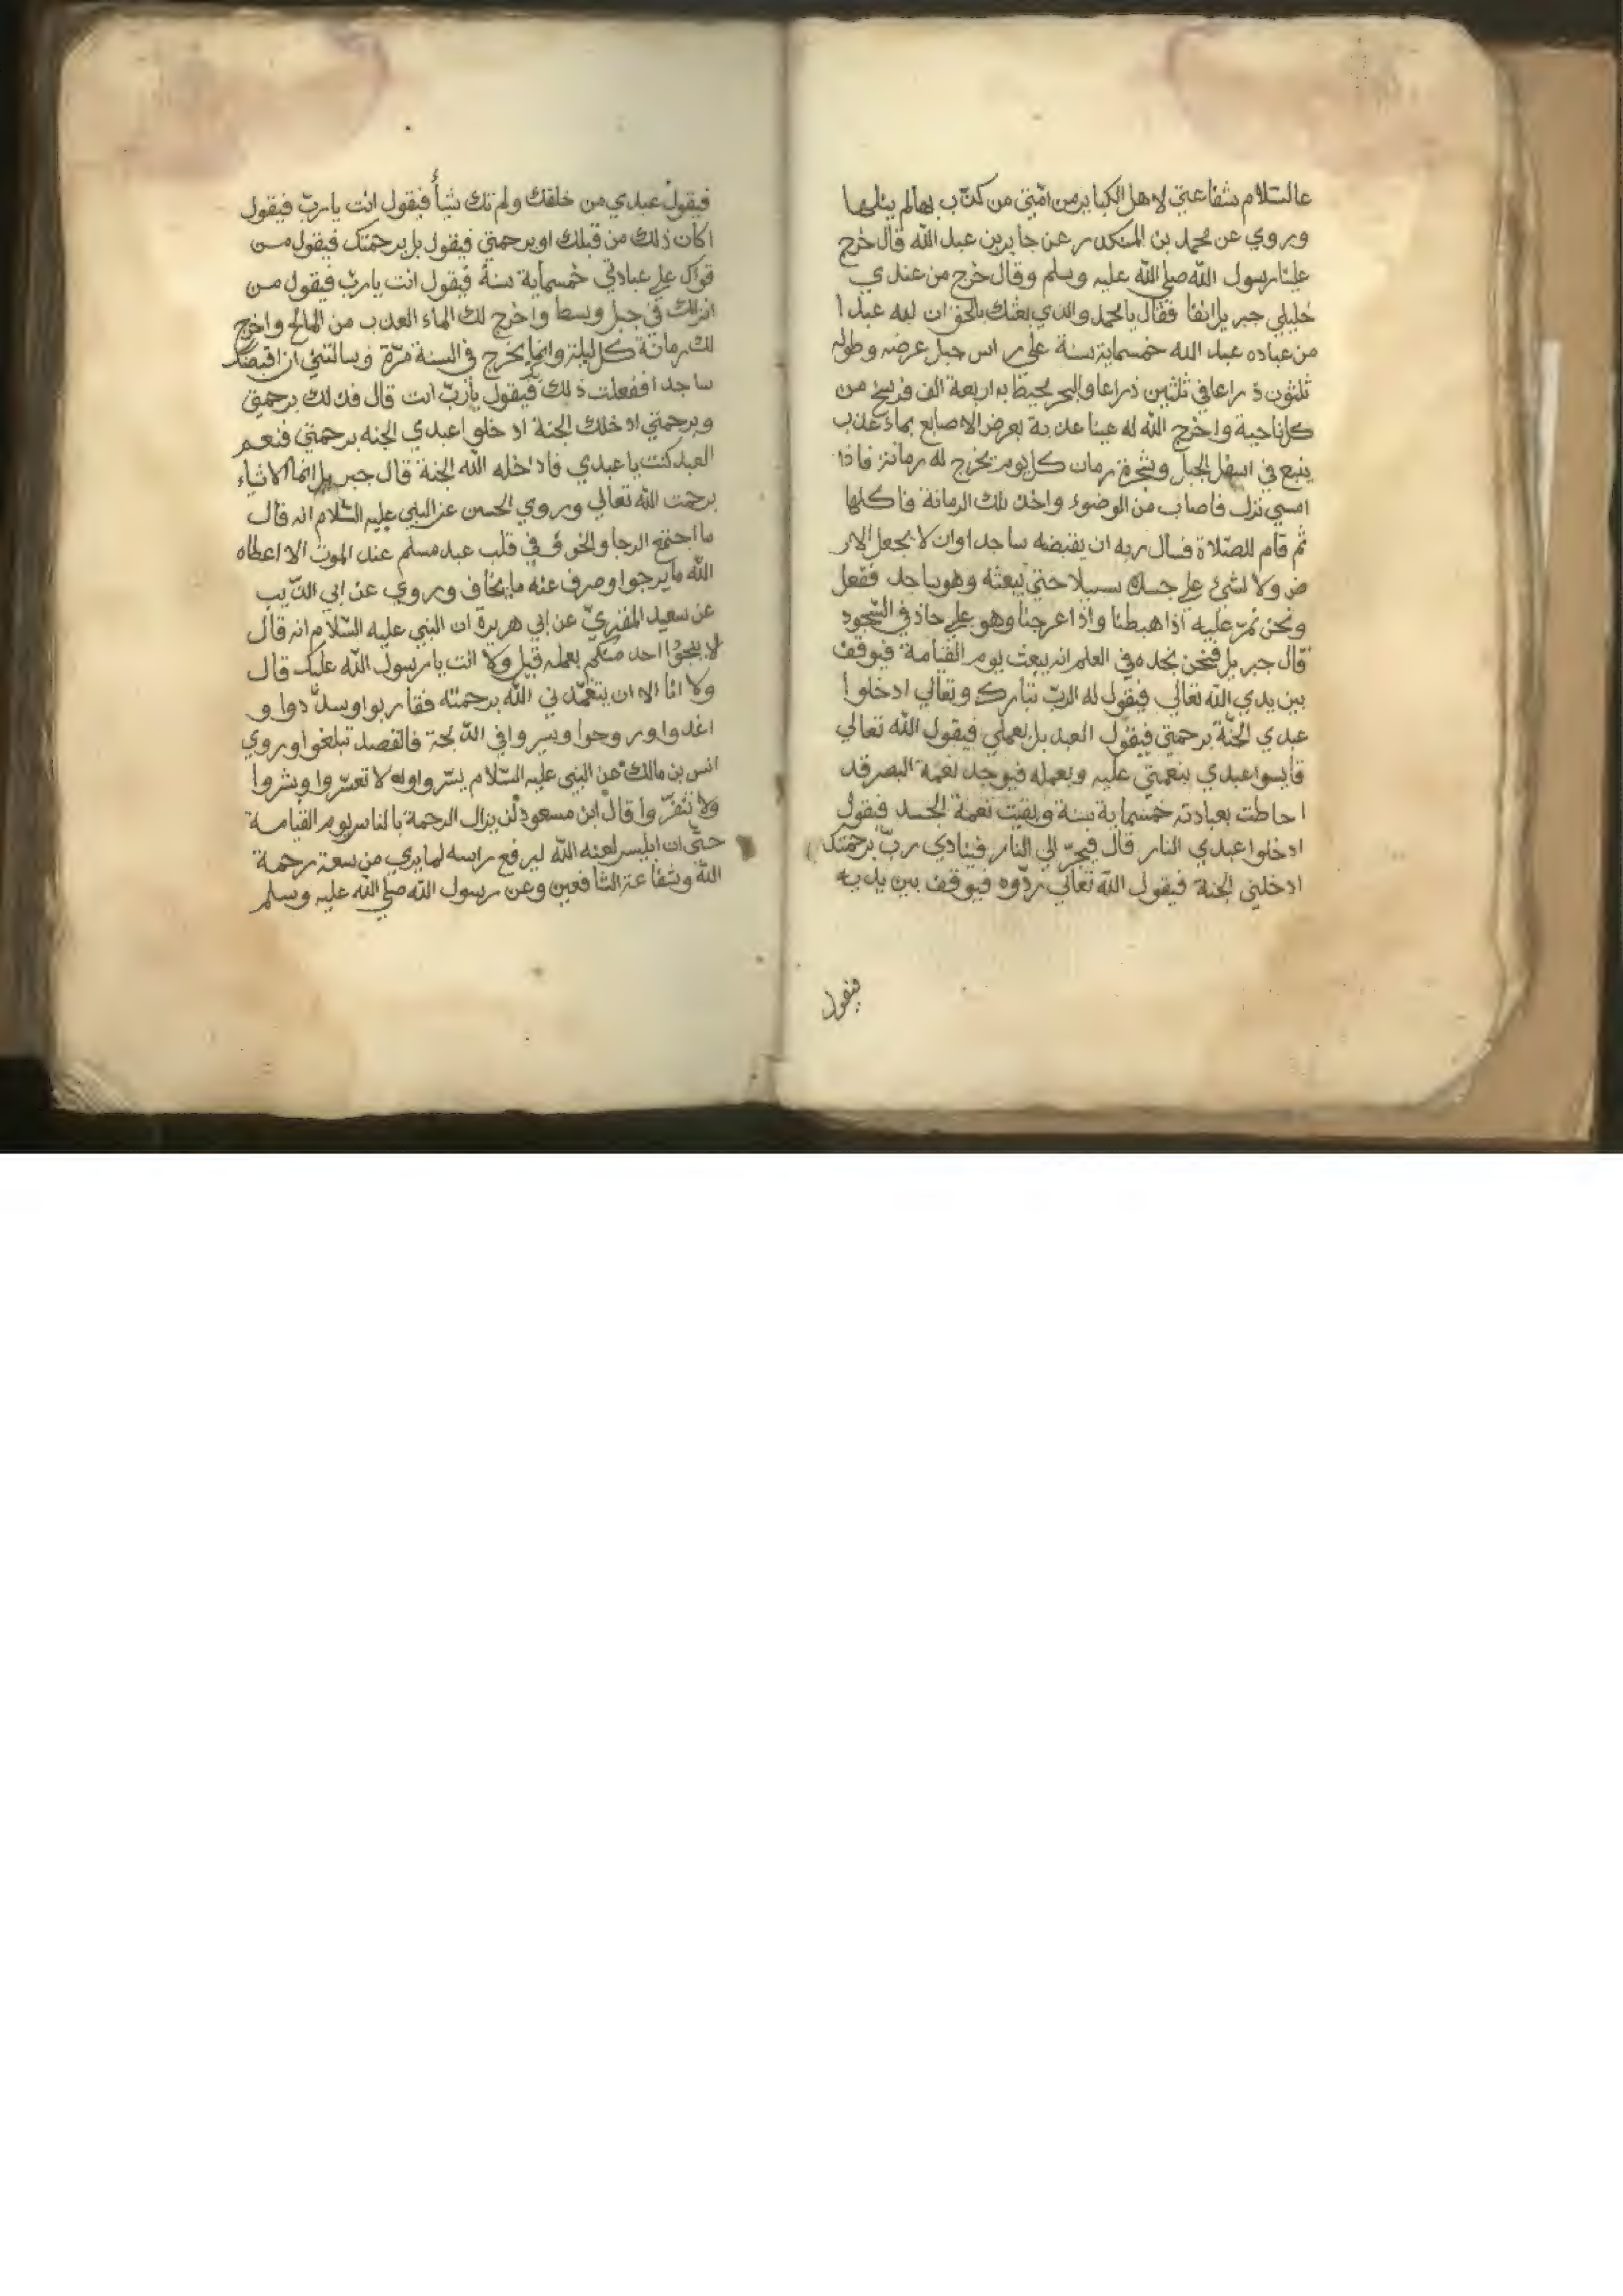 عالسّلام شفاعتي لاهل الكباير من امّتي من كذّب بها لم ينلها
وروي عن محمد بن المنكدر عن جابر بن عبد الله قال خرج
علينا رسول الله صلي الله عليه وسلم وقال خرج من عندي
خليلي جبريل انفا فقال يا محمد والذي بعثك بالحق ان لله عبدا
من عباده عبد الله خمسماية سنة علي راس جبل عرضه وطوله
ثلثون ذراعا في ثلثين ذراعا والبحر يحيط به اربعة الف فرسخ من
كل ناحية واخرج الله له عينا عذبة بعرض الاصابع بماء عذب
ينبع في اسفل الجبل وشجرة رمان كل يوم يخرج له رمانة فاذا
امسي نزل فاصاب من الوضوء واخذ تلك الرمانة فاكلها
ثم قام للصّلاة فسال ربه ان يقبضه ساجدا وان لا يجعل الار
ض ولا لشئ علي جسده سبيلا حتي يبعثه وهو ساجد ففعل
ونحن نمرّ عليه اذا هبطنا واذا عرجنا وهو علي حاذ في السّجود
قال جبريل فنحن نجده في العلم انه يبعث يوم القيامة فيوقف
بين يدي الله تعالي فيقول له الربّ تبارك وتعالي ادخلوا
عبدي الجنّة برحمتي فيقول العبد بل بعملي فيقول الله تعالي
قايسوا عبدي بنعمتي عليه وبعمله فيوجد نعمة البصر قد
احاطت بعبادته خمسماية سنة وبقيت نعمة الجسد فيقول
ادخلوا عبدي النار قال فيجرّ الي النار فينادي ربّ برحمتك
ادخلني الجنة فيقول الله تعالي ردّوه فيوقف بين يديه
فيقول
فيقول عبدي من خلقك ولم تك شيأ فيقول انت يا ربّ فيقول
اكان ذلك من قبلك او برحمتي فيقول بل برحمتك فيقول من
قواك علي عبادتي خمسماية سنة فيقول انت يا ربّ فيقول من
انزلك في جبل وسط واخرج لك الماء العذب من المالح واخرج
لك رمانة كل ليلة وانما يخرج في السنة مرّة وسالتني ان اقبضك
ساجدا ففعلت ذلك فيقول يا ربّ انت قال فذلك برحمتي
وبرحمتي ادخلك الجنة ادخلوا عبدي الجنه برحمتي فنعم
العبد كنت يا عبدي فادخله الله الجنة قال جبريل انما الاشياء
برحمت الله تعالي وروي الحسن عن النبي عليه السّلام انه قال
ما اجتمع الرجا والخوف في قلب عبد مسلم عند الموت الا اعطاه
الله ما يرجوا وصرف عنه ما يخاف وروي عن ابي
عن سعيد المقبريّ عن ابي هريرة ان النبي عليه السّلام انه قال
لا ينجوا احد منكم بعمله قيل ولا انت يا رسول الله عليك قال
ولا انا الا ان يتغمّدني الله برحمته فقاربوا وسدّدوا و
اغدوا وروحوا وسيروا في الدّلجة فالقصد تبلغوا وروي
انس بن مالك عن النبي عليه السّلام يسّروا ولا تعسّروا وبشروا
ولا تنفّروا قال ابن مسعود لن يزال الرحمة بالناس يوم القيامة
حتّي ان ابليس لعنه الله ليرفع راسه لما يري من سعة رحمة
الله وشفاعة الشافعين وعن رسول الله صلي الله عليه وسلم